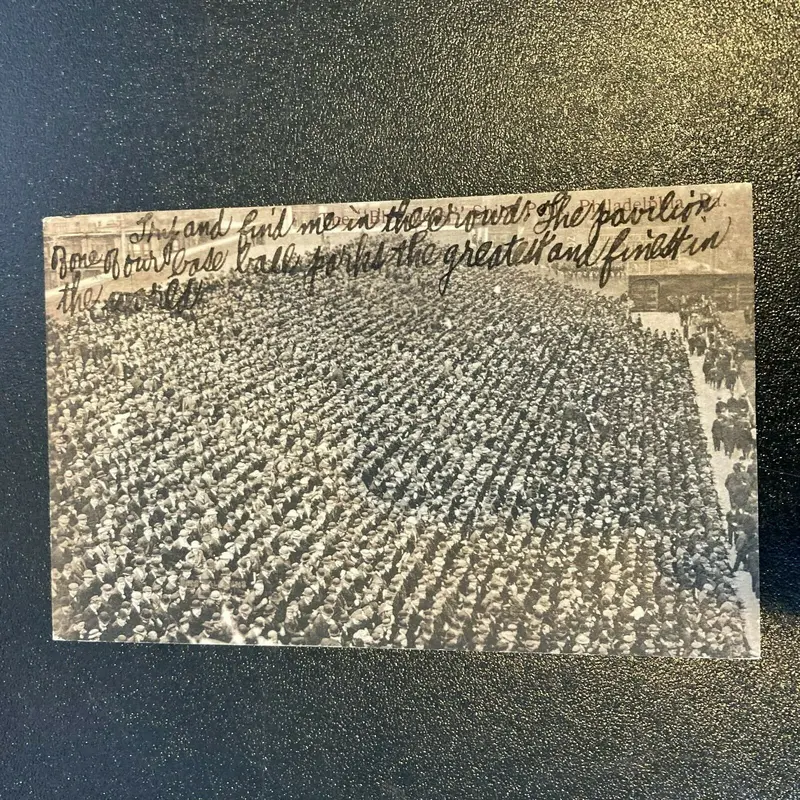 Try and find me in the crowd. The pavilion
Philadelphia, Pa.
one of our base ball parks the greatest and finest in
the world